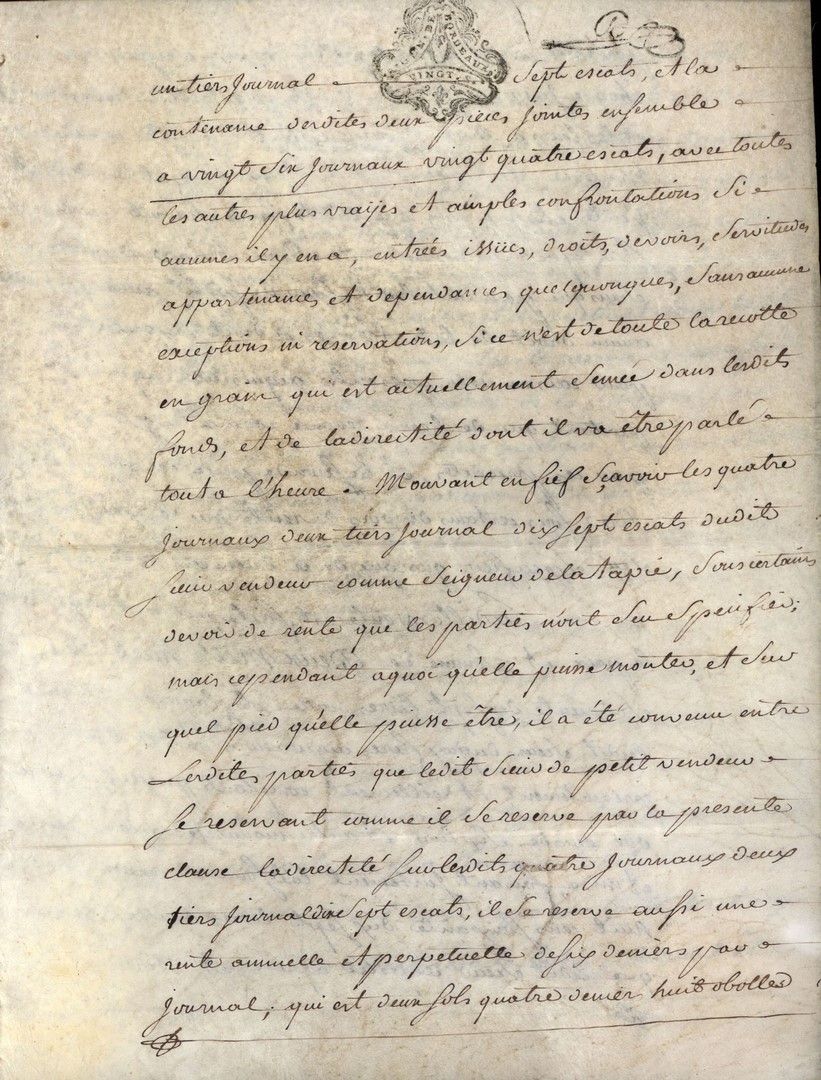 GEN. DE BORDEAUX
VINGT. S
un tiers Journal sept escats, et la
contenance desdites deux pieces jointes ensemble
a vingt six Journaux vingt quatre escats, avec toutes
les autres plus vrayes et amples confrontations si
aucunes il y en a, entrées issües, droits, devoirs, servitudes
appartenances et dependances quelquonques, sans aucune
exceptions ni reservations, si ce n'est de toute la recolte
en grain qui est actuellement semée dans lesdits
fonds, et de la directité dont il va être parlé
tout a l'heure. Mouvant en fief sçavoir les quatre
Journaux deux tiers Journal dix sept escats dudit
sieur vendeur comme Seigneur de latapie, sous certains
devoir de rente que les parties n'ont seu speciffier;
mais cependant a quoi qu'elle puisse monter, et sur
quel pied qu'elle puisse être, il a été convenu entre
Lesdites parties que ledit sieur de petit vendeur
se reservant comme il se reserve par la presente
clause la directité sur lesdits quatre Journaux deux
tiers Journal dix sept escats, il se reserve aussi une
rente annuelle et perpetuelle de six deniers par
Journal; qui est deux sols quatre deniers huit obolles